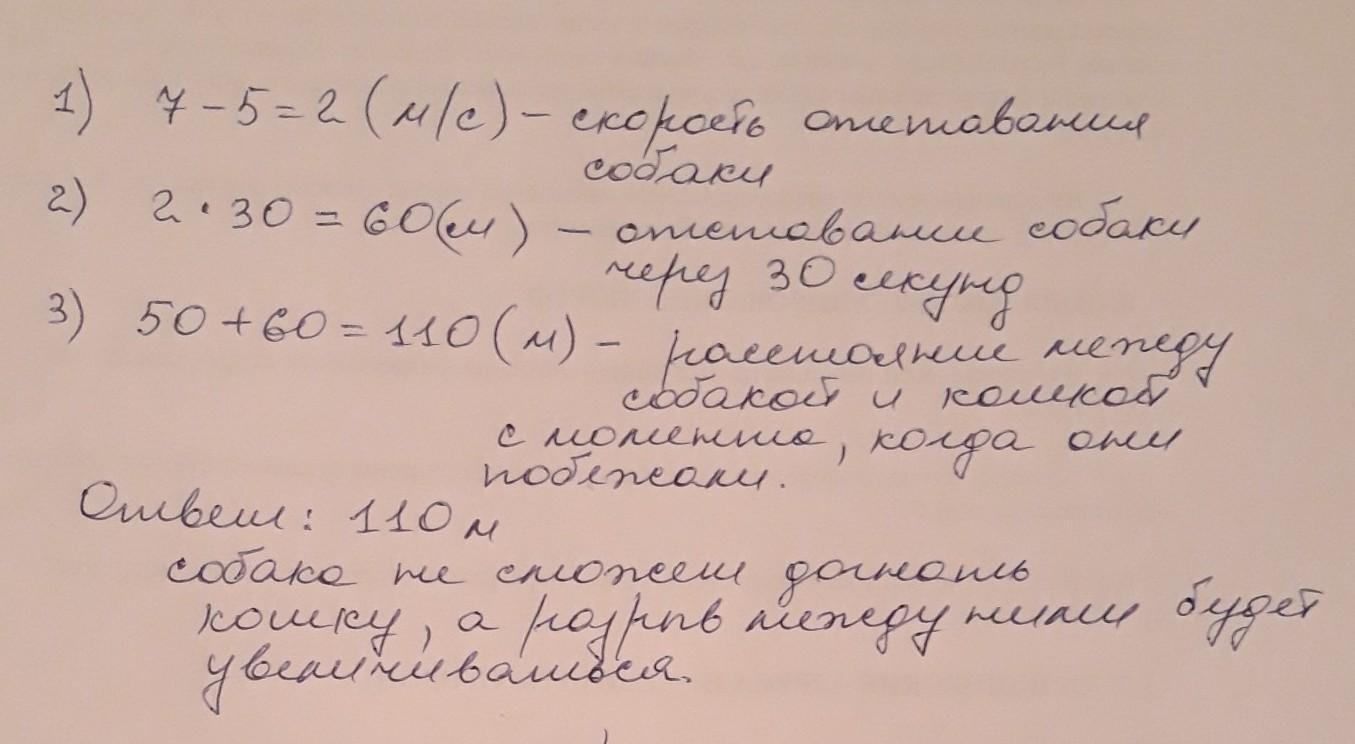 1) 7 - 5 = 2 (м/с) - скорость отставания
собаки
2) 2 · 30 = 60(м) - отставание собаки
через 30 секунд
3) 50 + 60 = 110 (м) - расстояние между
собакой и кошкой
с момента, когда они
побежали.
Ответ: 110 м
собака не сможет догнать
кошку, а разрыв между ними будет
увеличиваться.